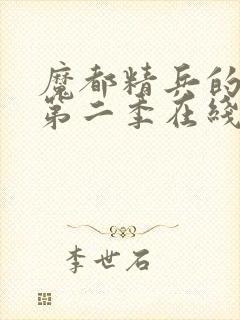 魔都精兵的
第二季在线
李世石